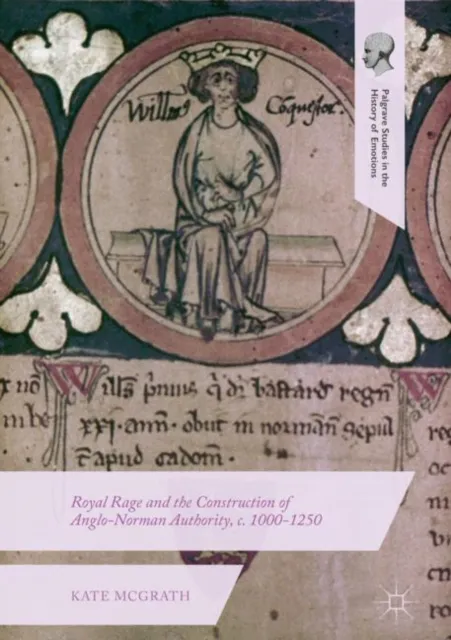 Palgrave Studies in the
History of Emotions
Will'us Coquestor.
Will's p'mus q' d'r bastard' regn'
xxi. ann. obiit in normann' sepul'
apud cadom.
Royal Rage and the Construction of
Anglo-Norman Authority, c. 1000–1250
KATE MCGRATH